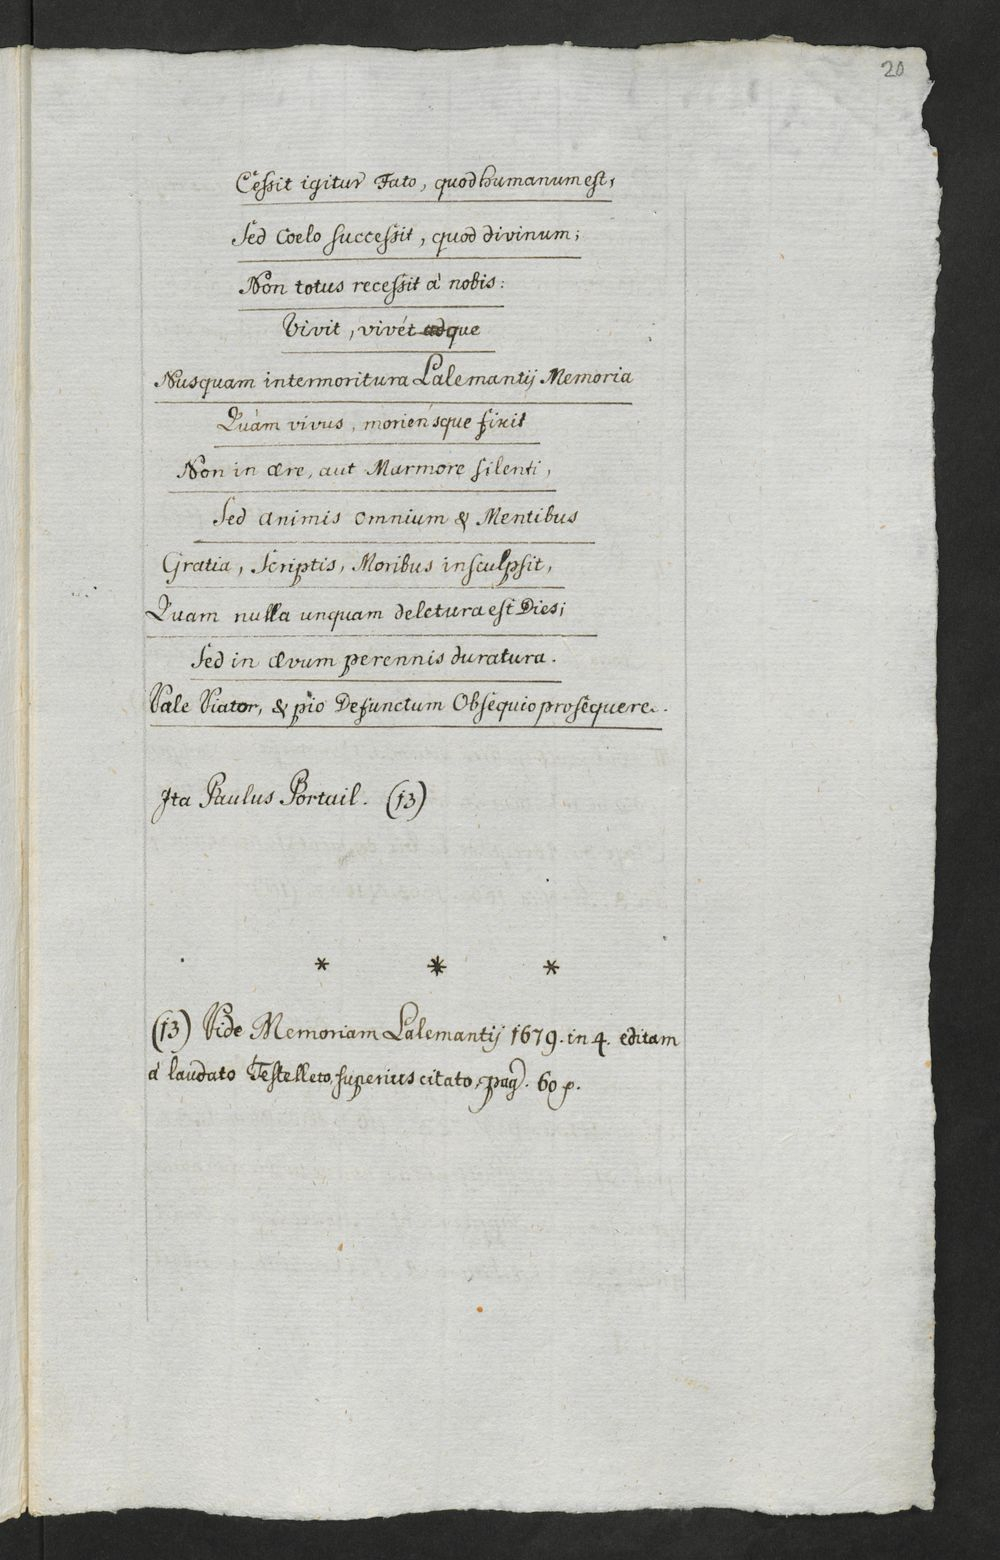 20
Cessit igitur Fato, quod humanum est,
Sed Coelo successit, quod divinum;
Non totus recessit à nobis:
Vivit, vivét adque
Nusquam intermoritura Lalemantij Memoria
Quàm vivus, moriénsque fixit
Non in ære, aut Marmore silenti,
Sed animis omnium & Mentibus
Gratia, Scriptis, Moribus insculpsit,
Quam nulla unquam deletura est Dies;
Sed in ævum perennis duratura.
Vale Viator, & pio Defunctum Obsequio prosequere.
Ita Paulus Portail. (13)
* * *
(13) Vide Memoriam Lalemantij 1679. in 4. editam
à laudato Testelleto, superius citato, pag. 60